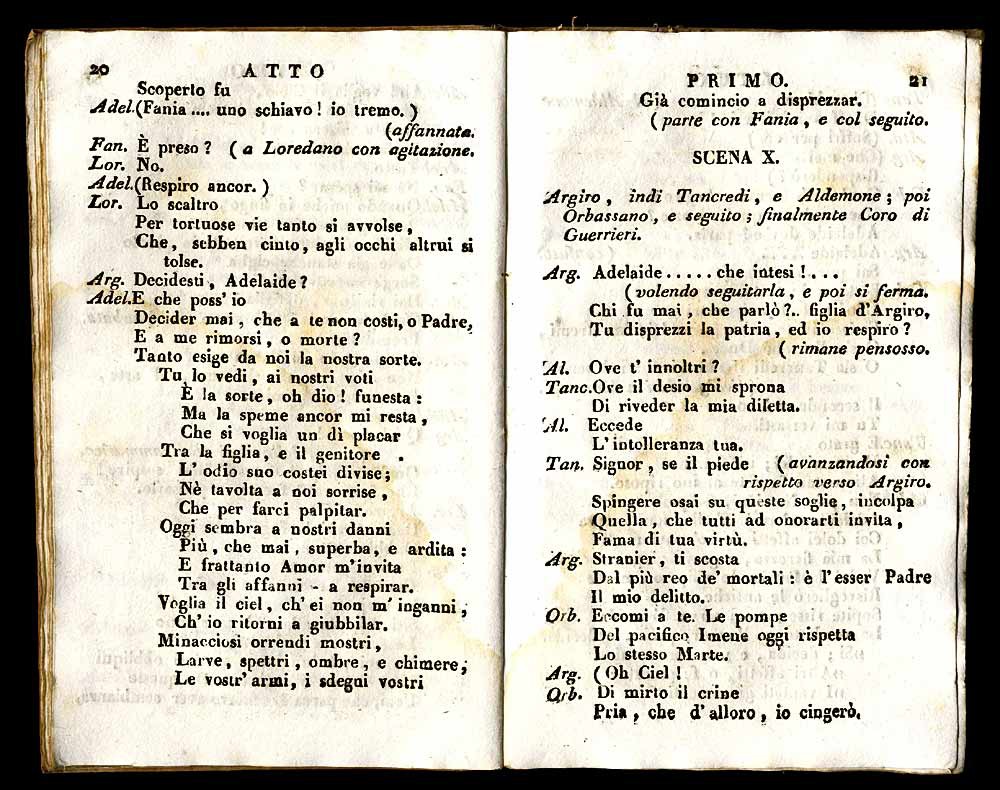 20 ATTO
Scoperto fu
Adel.(Fania .... uno schiavo! io tremo.)
(affannata.
Fan. È preso? (a Loredano con agitazione.
Lor. No.
Adel.(Respiro ancor.)
Lor. Lo scaltro
Per tortuose vie tanto si avvolse,
Che, sebben cinto, agli occhi altrui si
tolse.
Arg. Decidesti, Adelaide?
Adel.E che poss' io
Decider mai, che a te non costi, o Padre,
E a me rimorsi, o morte?
Tanto esige da noi la nostra sorte.
Tu lo vedi, ai nostri voti
È la sorte, oh dio! funesta:
Ma la speme ancor mi resta,
Che si voglia un dì placar
Tra la figlia, e il genitore.
L' odio suo costei divise;
Nè tavolta a noi sorrise,
Che per farci palpitar.
Oggi sembra a nostri danni
Più, che mai, superba, e ardita:
E frattanto Amor m'invita
Tra gli affanni - a respirar.
Voglia il ciel, ch' ei non m' inganni,
Ch' io ritorni a giubbilar.
Minacciosi orrendi mostri,
Larve, spettri, ombre, e chimere,
Le vostr' armi, i sdegni vostri
PRIMO. 21
Già comincio a disprezzar.
(parte con Fania, e col seguito.
SCENA X.
Argiro, indi Tancredi, e Aldemone; poi
Orbassano, e seguito; finalmente Coro di
Guerrieri.
Arg. Adelaide ..... che intesi!...
(volendo seguitarla, e poi si ferma.
Chi fu mai, che parlò?.. figlia d'Argiro,
Tu disprezzi la patria, ed io respiro?
(rimane pensosso.
Al. Ove t' innoltri?
Tanc.Ove il desio mi sprona
Di riveder la mia diletta.
Al. Eccede
L' intolleranza tua.
Tan. Signor, se il piede (avanzandosi con
rispetto verso Argiro.
Spingere osai su queste soglie, incolpa
Quella, che tutti ad onorarti invita,
Fama di tua virtù.
Arg. Stranier, ti scosta
Dal più reo de' mortali: è l'esser Padre
Il mio delitto.
Orb. Eccomi a te. Le pompe
Del pacifico Imene oggi rispetta
Lo stesso Marte.
Arg. (Oh Ciel!
Orb. Di mirto il crine
Pria, che d' alloro, io cingerò.